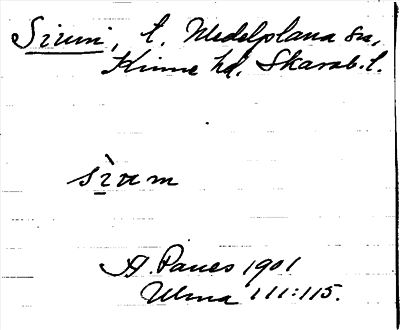 Sirum, t. Medelplana sn,
Kinne hd. Skarab. l.
sìrum
A. Panes 1901
Ulma 111:115.